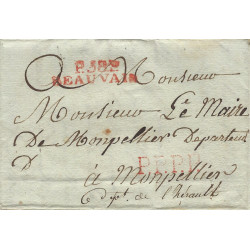 P.58.P
BEAUVAIS
Monsieur
Monsieur Le Maire
De Monpellier Departeut
D
P.P.P.P.
à Monpellier
Dept. de l'hérault